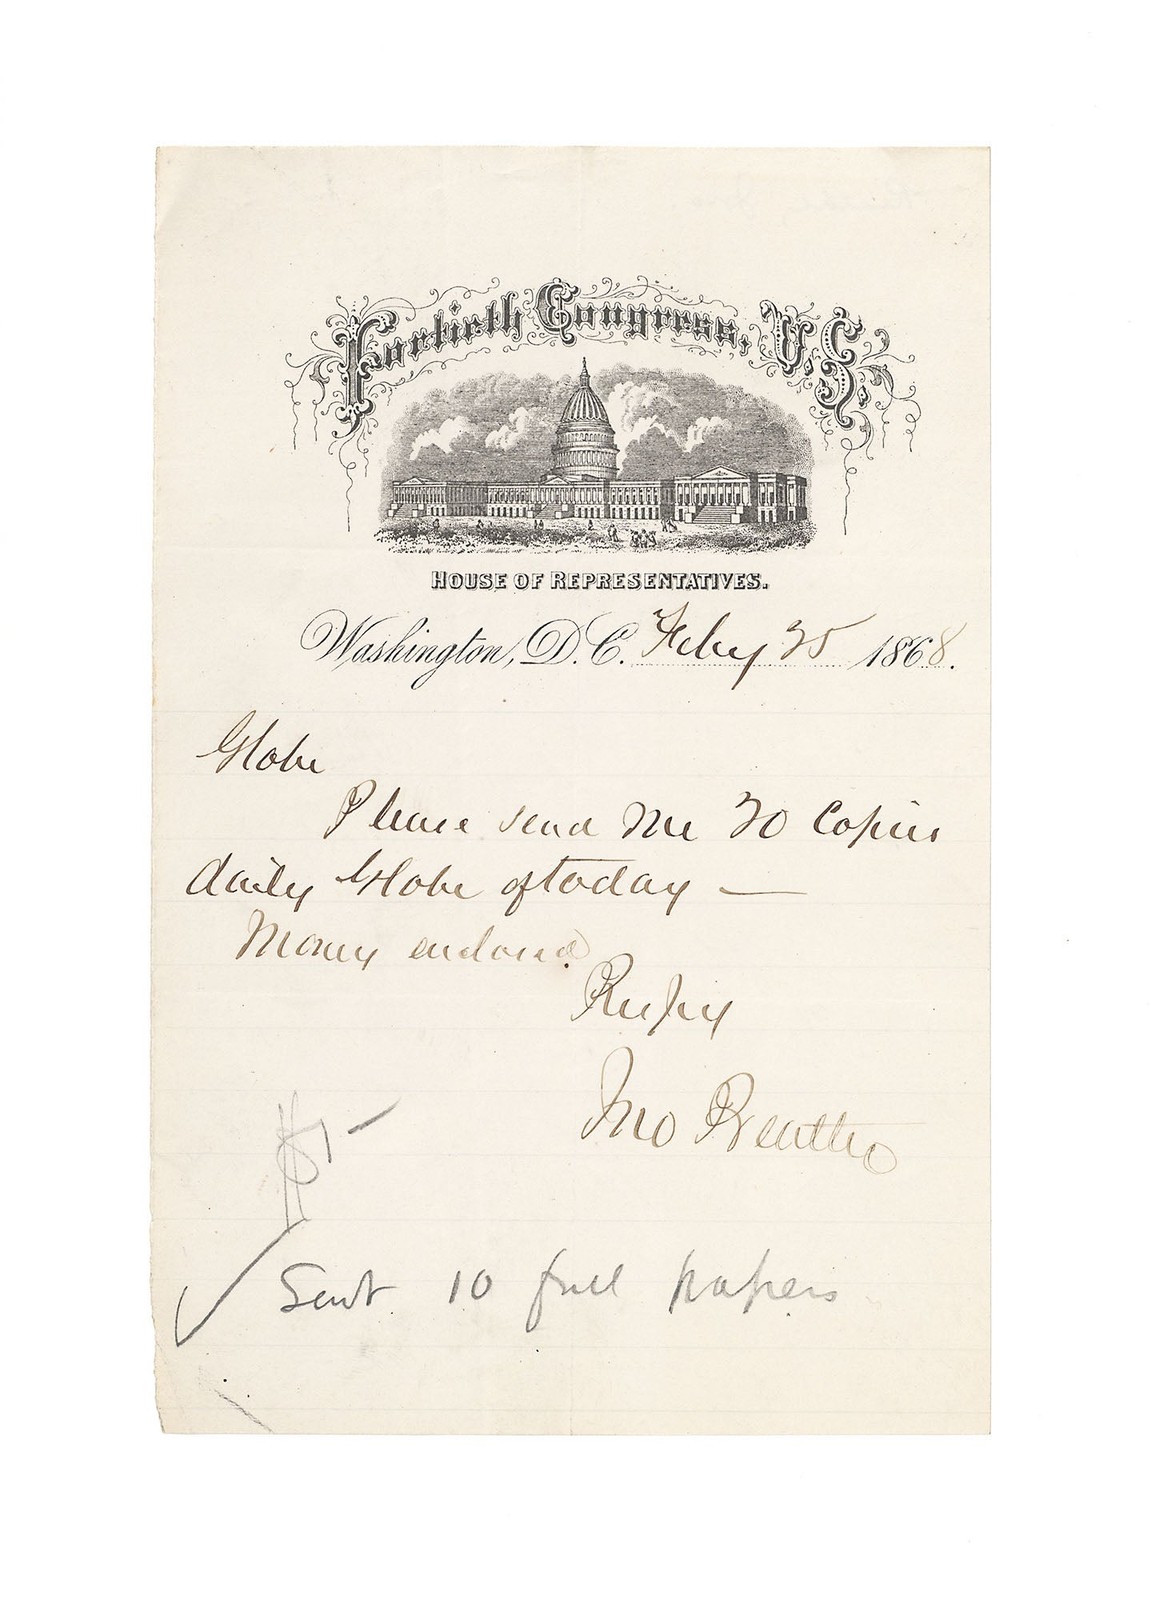 Fortieth Congress, U.S.
HOUSE OF REPRESENTATIVES.
Washington, D.C. Feby 25 1868.
Globe
Please send me 20 Copies
daily Globe of today —
Money enclosed.
Respy
Jno
Sent 10 full papers